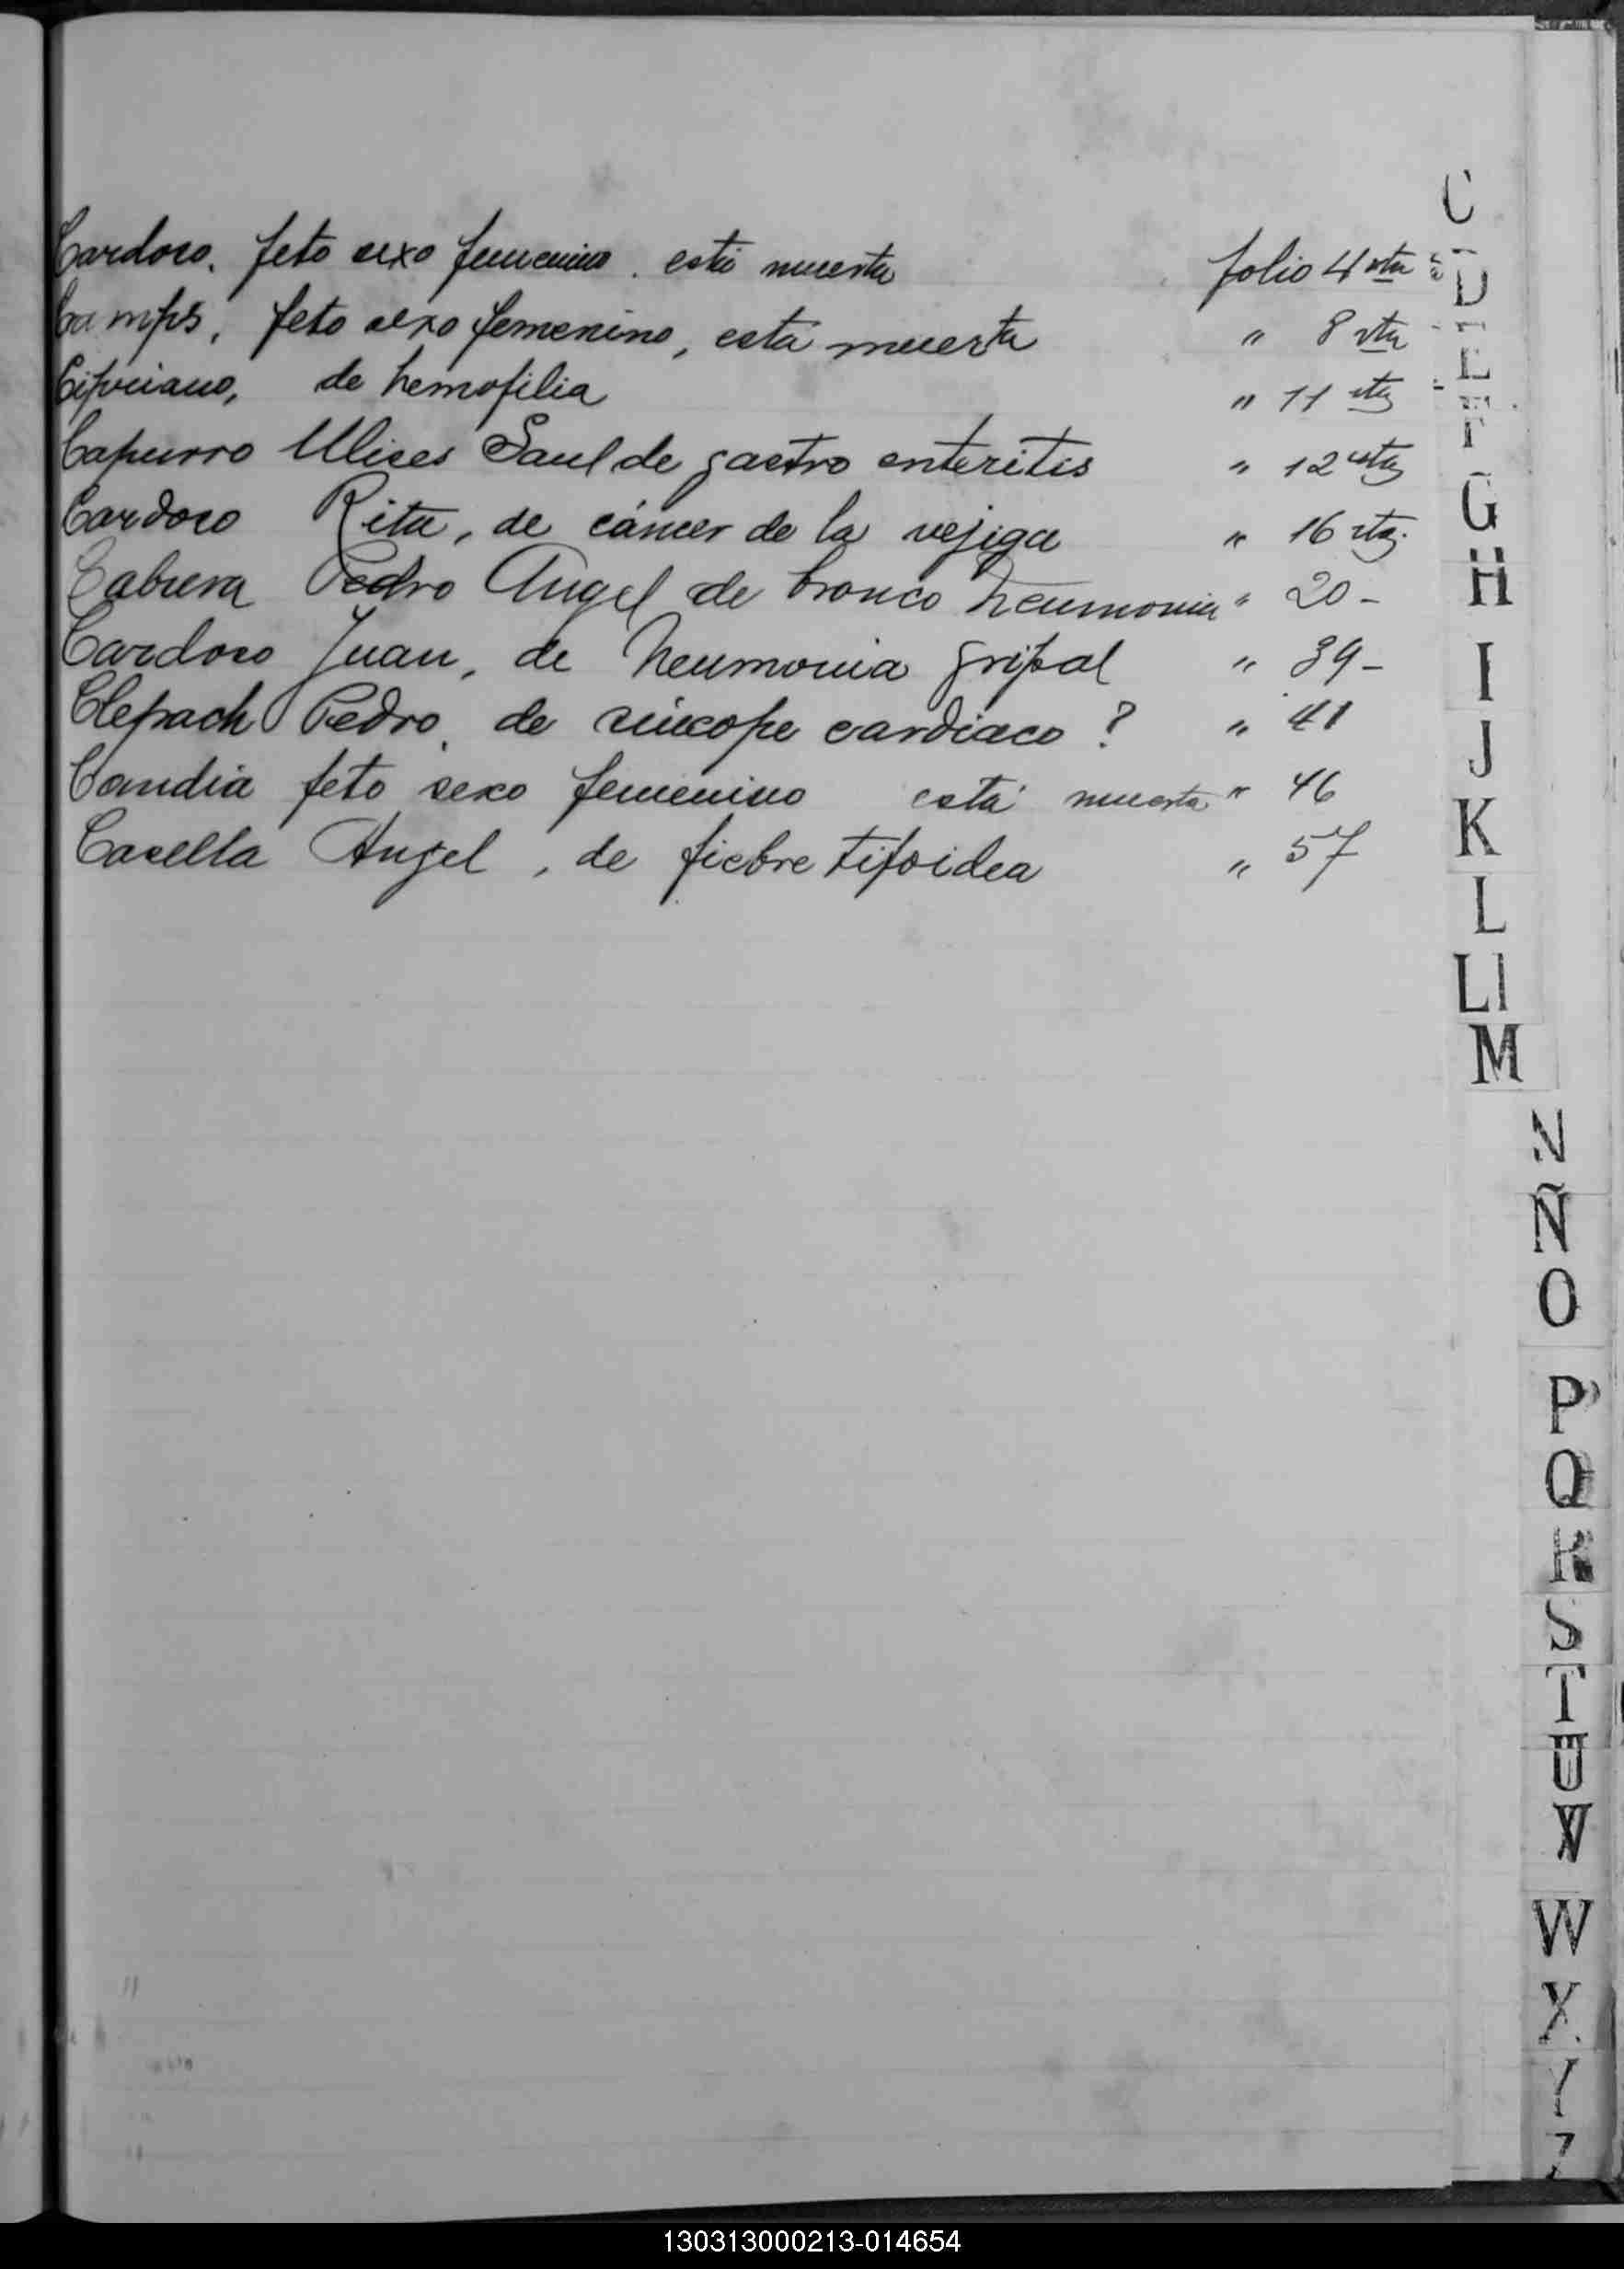 Cardoso, feto sexo femenino. está muerta folio 4 vta
Camps, feto sexo femenino, está muerta " 8 vta
Cipriano, de hemofilia " 11 vta
Capurro Ulises Saul de gastro enteritis " 12 vta
Cardoso Rita, de cáncer de la vejiga " 16 vta.
Cabrera Pedro Angel de bronco neumonia " 20 -
Cardoso Juan, de neumonia gripal " 39 -
Clepach Pedro, de síncope cardiaco ? " 41
Candia feto sexo femenino está muerta " 46
Casella Angel, de fiebre tifoidea " 57
C
D
E
F
G
H
I
J
K
L
Ll
M
N
Ñ
O
P
Q
R
S
T
U
V
W
X
Y
Z
130313000213-014654